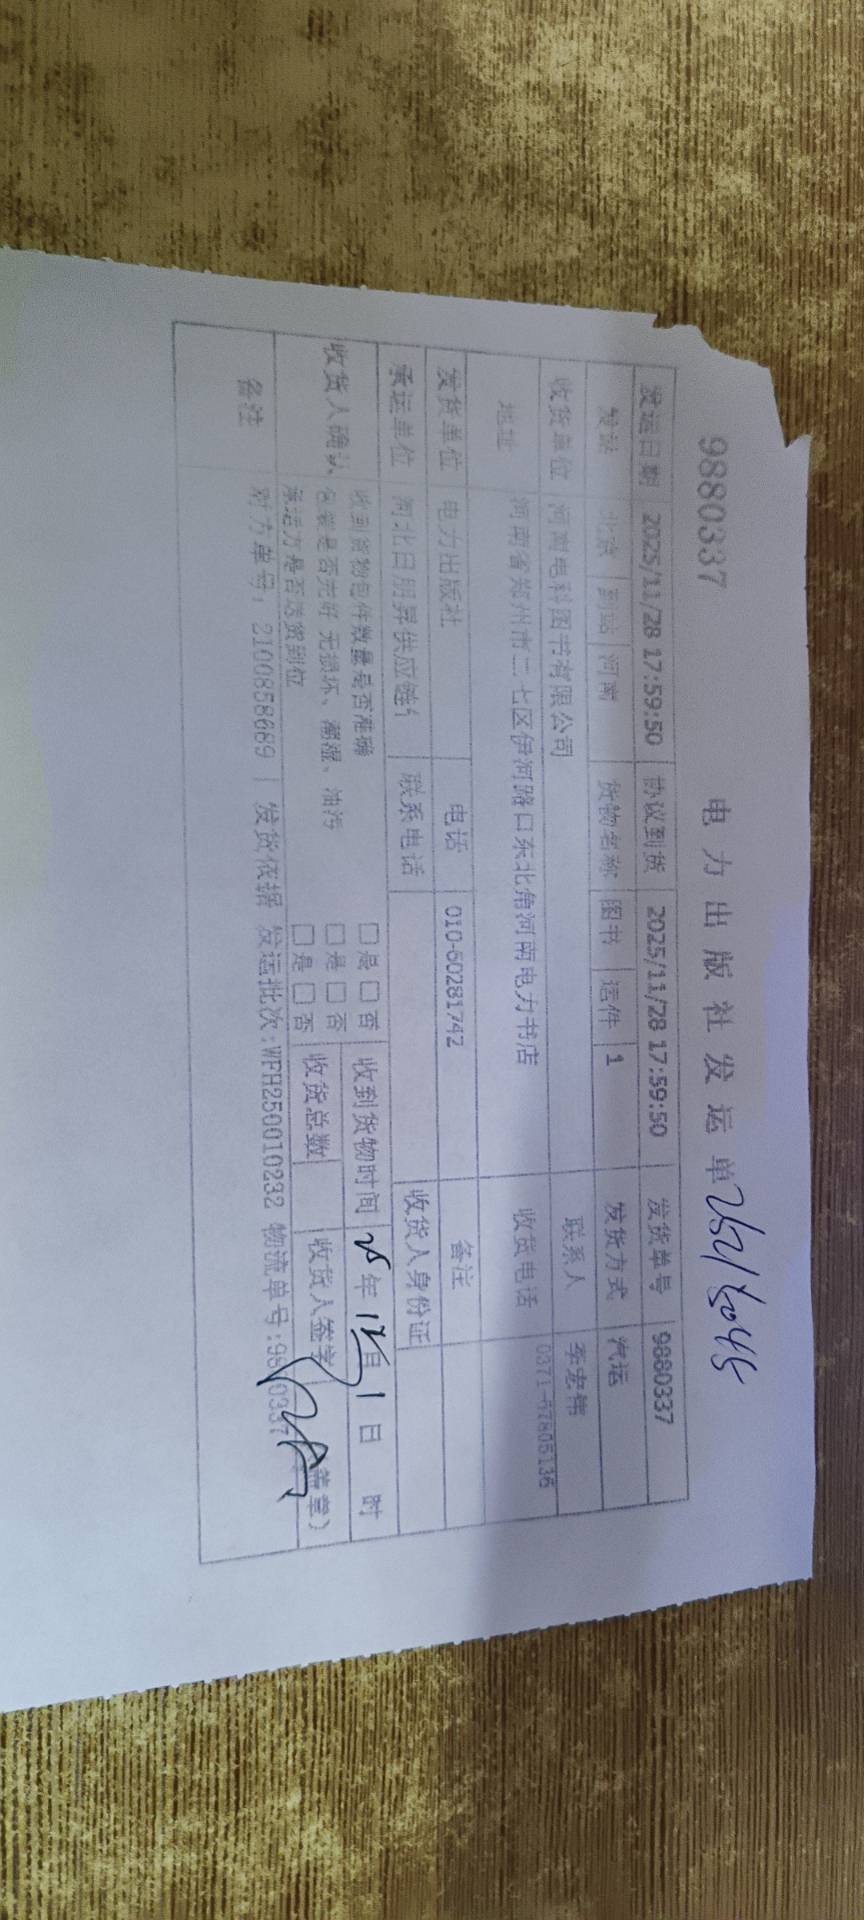 9880337
电力出版社发运单
发运日期 2025/11/28 17:59:50 协议到货 2025/11/28 17:59:50 发货单号 9880337
发站 北京 到站 河南 货物名称 图书 运件 1 发货方式 汽运
收货单位 河南电科图书有限公司 联系人 李宏伟
地址 河南省郑州市二七区伊河路口东北角河南电力书店 收货电话 0371-67805136
发货单位 电力出版社 电话 010-60281742 备注
承运单位 河北日朋昇供应链 联系电话 收货人身份证
收货人确认 收到货物包件数量是否准确 □是□否 收到货物时间 25年12月1日 时
包装是否完好 无损坏、潮湿、油污 □是□否 收货总数 收货人签字 盖章）
承运方是否送货到位 □是□否
备注 对方单号：2100858689 | 发货依据 发运批次:WFH250010232 物流单号:9880337